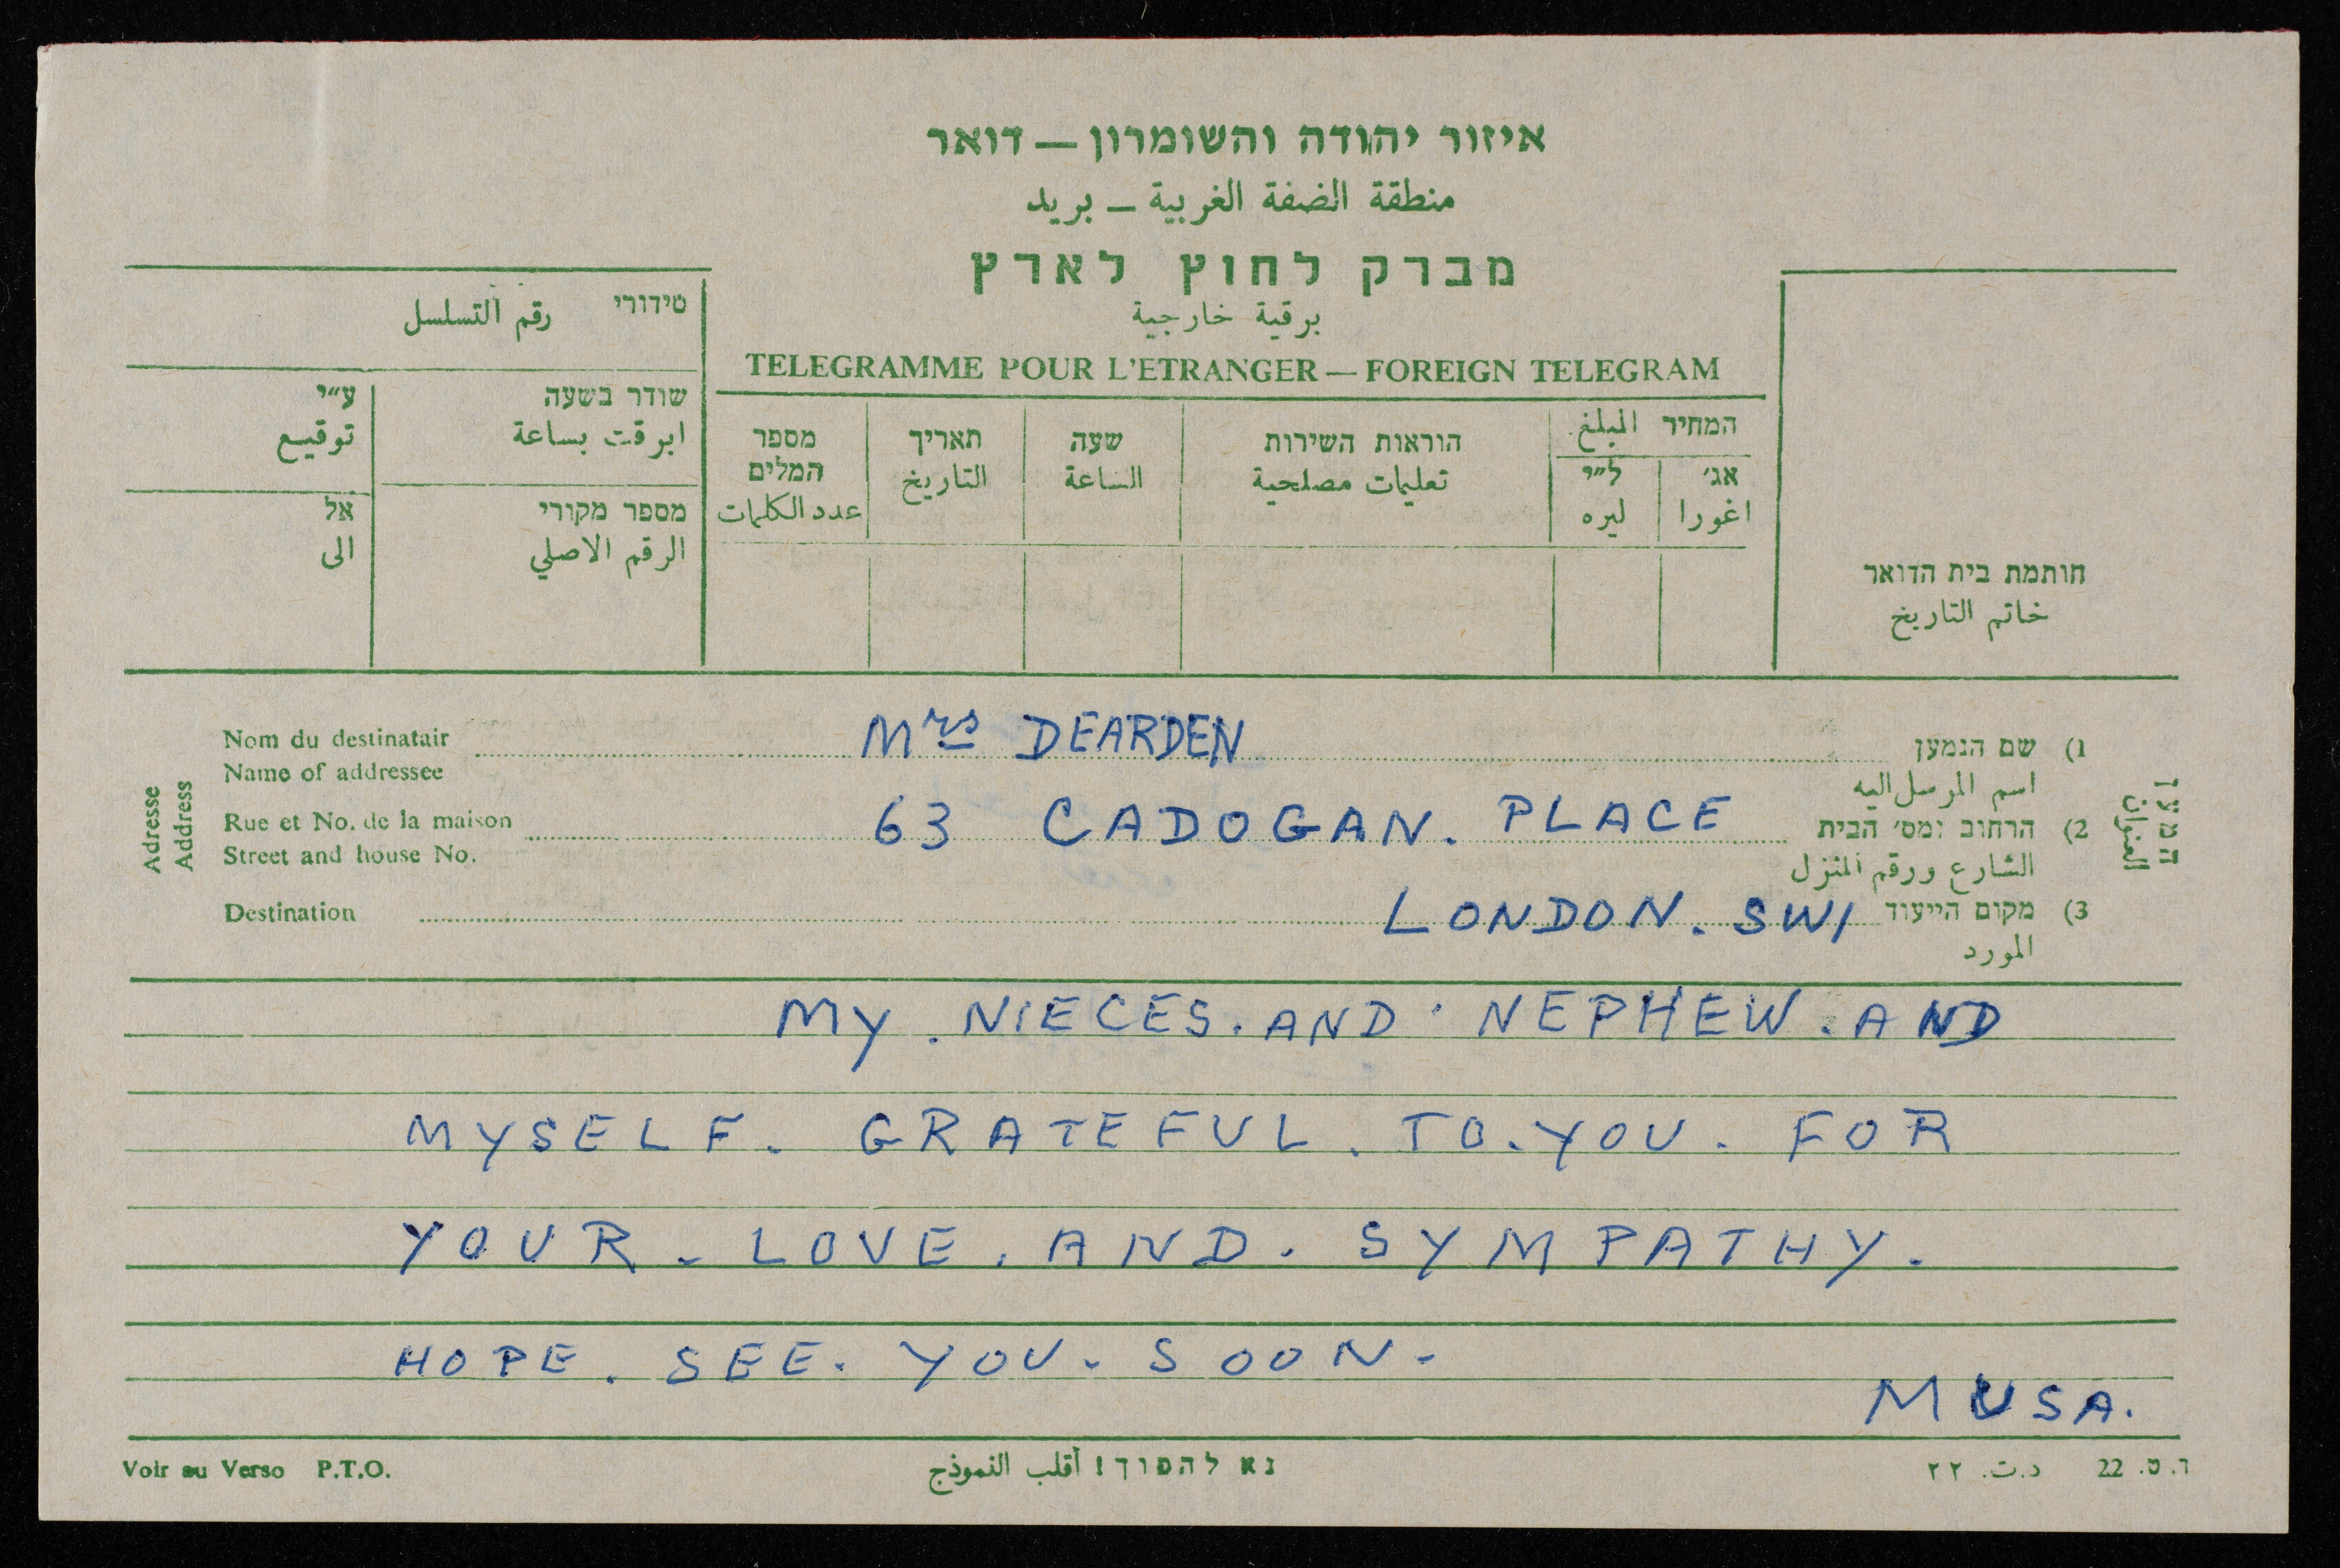 איזור יהודה והשומרון – דואר
منطقة الضفة الغربية – بريد
מברק לחוץ לארץ
برقية خارجية
TELEGRAMME POUR L'ETRANGER — FOREIGN TELEGRAM
סידורי
رقم التسلسل
שודר בשעה
ابرقت بساعة
ע״י
توقيع
מספר מקורי
الرقم الاصلي
אל
الى
מספר המלים
عدد الكلمات
תאריך
التاريخ
שעה
الساعة
הוראות השירות
تعليمات مصلحية
המחיר المبلغ
ל״י
ليره
אג׳
اغورا
חותמת בית הדואר
خاتم التاريخ
Adresse
Address
המען
العنوان
Nom du destinatair Mrs DEARDEN שם הנמען (1
Name of addressee اسم المرسل اليه
Rue et No. de la maison 63 CADOGAN. PLACE הרחוב ומס׳ הבית (2
Street and house No. الشارع ورقم المنزل
Destination LONDON. SW1 מקום הייעוד (3
المورد
MY. NIECES. AND. NEPHEW. AND
MYSELF. GRATEFUL. TO. YOU. FOR
YOUR. LOVE. AND. SYMPATHY.
HOPE. SEE. YOU. SOON.
MUSA.
Voir au Verso P.T.O.
נא להפוך! أقلب النموذج
ד.ט. 22 د.ت. ٢٢